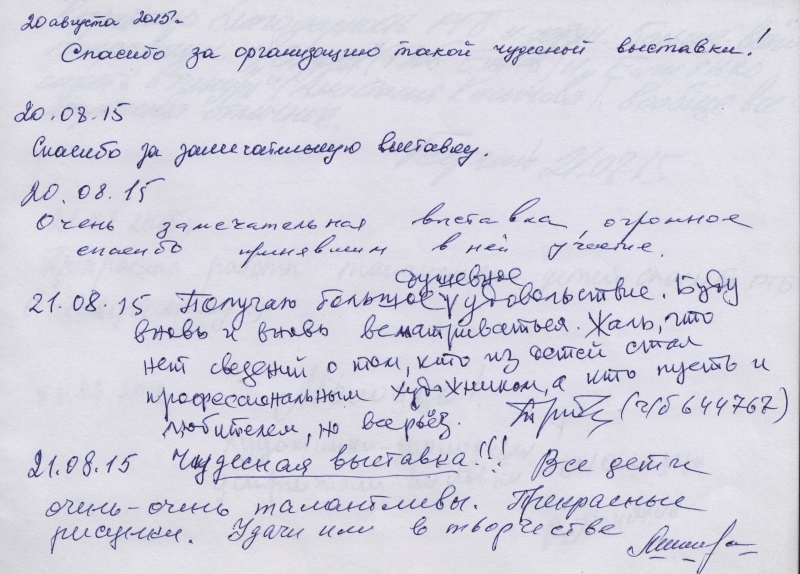 20 августа 2015г.
Спасибо за организацию такой чудесной выставки!
20.08.15
Спасибо за замечательную выставку.
20.08.15
Очень замечательная выставка, огромное
спасибо принявшим в ней участие.
душевное
21.08.15 Получаю большое удовольствие. Буду
вновь и вновь всматриваться. Жаль, что
нет сведений о том, кто из детей стал
профессиональным художником, а кто пусть и
любителем, но всерьёз. (ч/б 644767)
21.08.15 Чудесная выставка!!! Все дети
очень-очень талантливы. Прекрасные
рисунки. Удачи им в творчестве